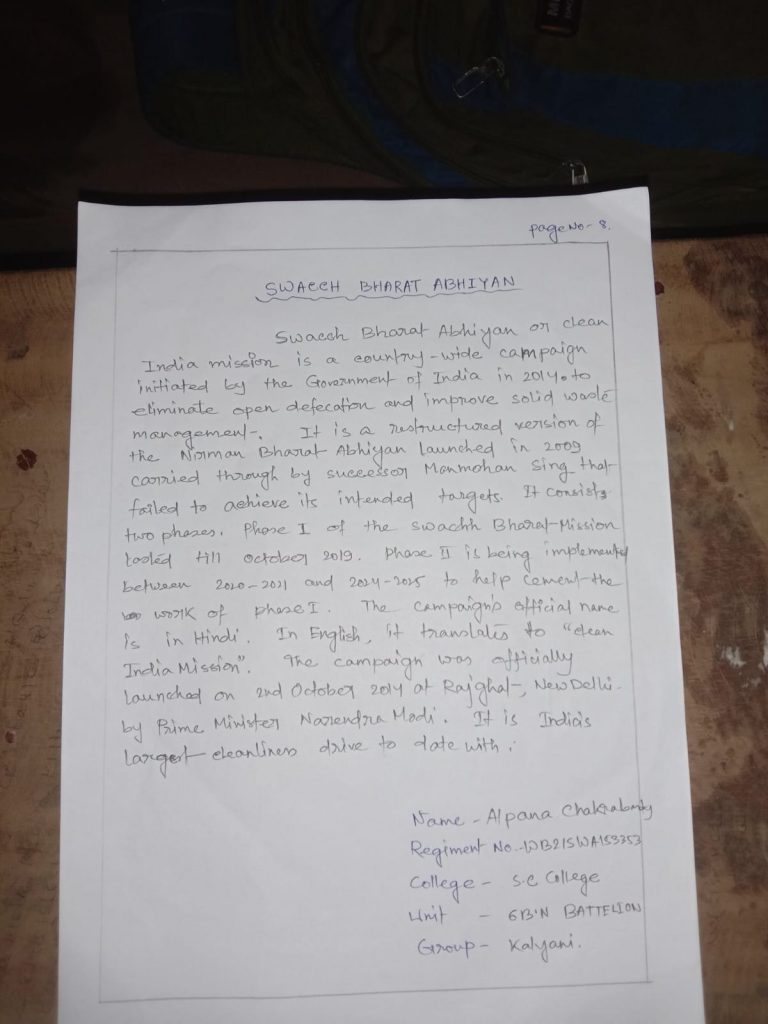 Page No- 8.
SWACCH BHARAT ABHIYAN
Swacch Bharat Abhiyan or clean
India mission is a country-wide campaign
initiated by the Government of India in 2014. to
eliminate open defecation and improve solid waste
management. It is a restructured version of
the Nirman Bharat Abhiyan launched in 2009
carried through by successor Manmohan Sing that
failed to achieve its intended targets. It consists
two phases. Phase I of the Swachh Bharat Mission
lasted till October 2019. Phase II is being implemented
between 2020-2021 and 2024-2025 to help cement the
work of phase I. The campaign's official name
is in Hindi. In English, it translates to "clean
India Mission". The campaign was officially
launched on 2nd October 2014 at Rajghat, New Delhi.
by Prime Minister Narendra Modi. It is India's
largest cleanliness drive to date with.
Name - Alpana Chakraborty
Regiment No.-WB21SWA153353
College - S.C College
Unit - 6B'N BATTELION
Group - Kalyani.